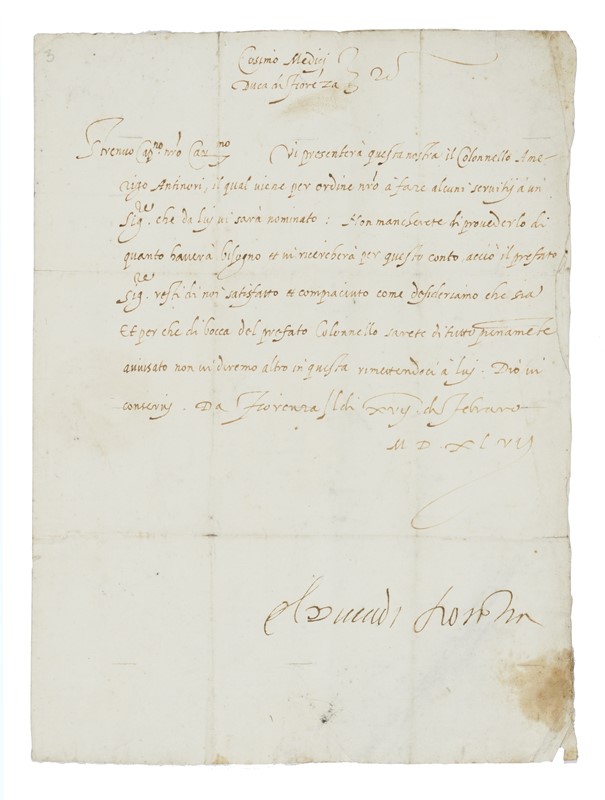 3
Cosimo Medici
Duca di Fiorẽza
Strenuo Cap.no nr̃o Car.mo Vi presenterà questa nostra il Colonnello Ame-
rigo Antinori, il qual viene per ordine nr̃o à fare alcuni servitij à un
Sig.re che da lui vi sarà nominato: Non mancherete di provederlo di
quanto haverà bisogno et vi ricercherà per questo conto, acciò il prefato
Sig.re resti di noi satisfatto et compiaciuto come desideriamo che sia
Et per che di bocca del prefato Colonnello sarete di tutto pienamẽte
avvisato non vi diremo altro in questa rimettendoci à lui. Dio vi
conservi. Da Fiorenza li di xvij di Febraro
M D XLVIJ
el Duca di Fiorenza